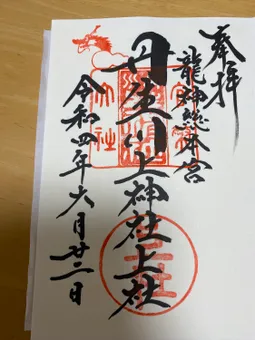 奉拝
龍神総本宮
丹生川上神社上社
令和四年六月廿二日